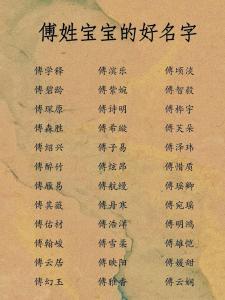 傅姓宝宝的好名字
傅学释 傅滨乐 傅顷淡
傅碧龄 傅紫婉 傅智毅
傅琛原 傅诗明 傅桦宇
傅森胜 傅希縱 傅芙朵
傅绍兴 傅子易 傅泽玮
傅醉竹 傅炫昂 傅惜质
傅雁易 傅航缦 傅瑶卿
傅其薇 傅丹寒 傅宛瑶
傅佑材 傅浩洋 傅明鸿
傅翰峻 傅雪蔓 傅雄恺
傅云居 傅映阳 傅媛甜
傅幻玉 傅雅香 傅云娴